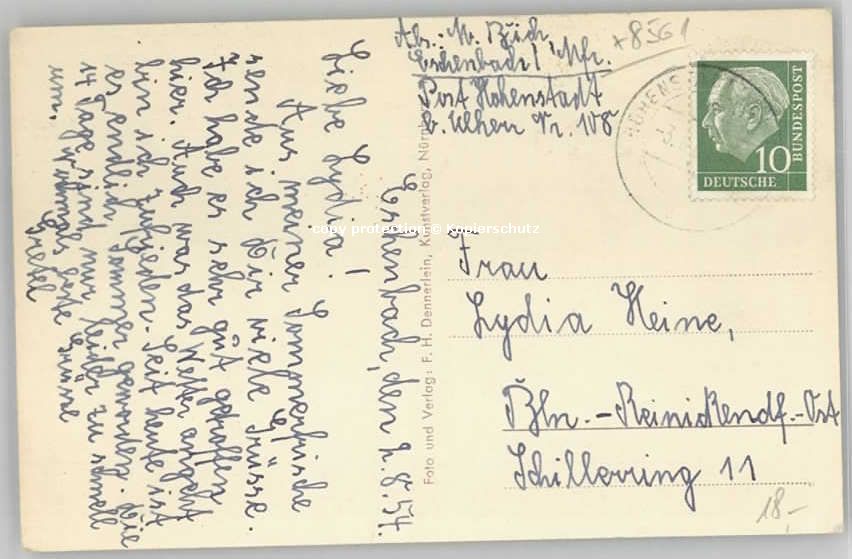 Abs.: M. Büch,
Eschenbach / Mfr.
Post Hohenstadt
b. Nr. 108
+8561
HOHENS
10
DEUTSCHE
BUNDESPOST
Eschenbach, den 2.8.54.
Liebe Lydia!
Aus meiner Sommerfrische
sende ich Dir viele Grüsse.
Ich habe es sehr gut getroffen
hier. Auch was das Wetter angeht
bin ich zufrieden. Seit heute ist
es endlich Sommer geworden. Die
14 Tage sind nur leider zu schnell
um. Nochmals Grüsse
Gretl
Foto und Verlag: F. H. Dennerlein, Kunstverlag, Nürnberg
copy protection © Kopierschutz
Frau
Lydia Heine,
Bln.-Reinickendf.-Ost
Schillerring 11
18,-